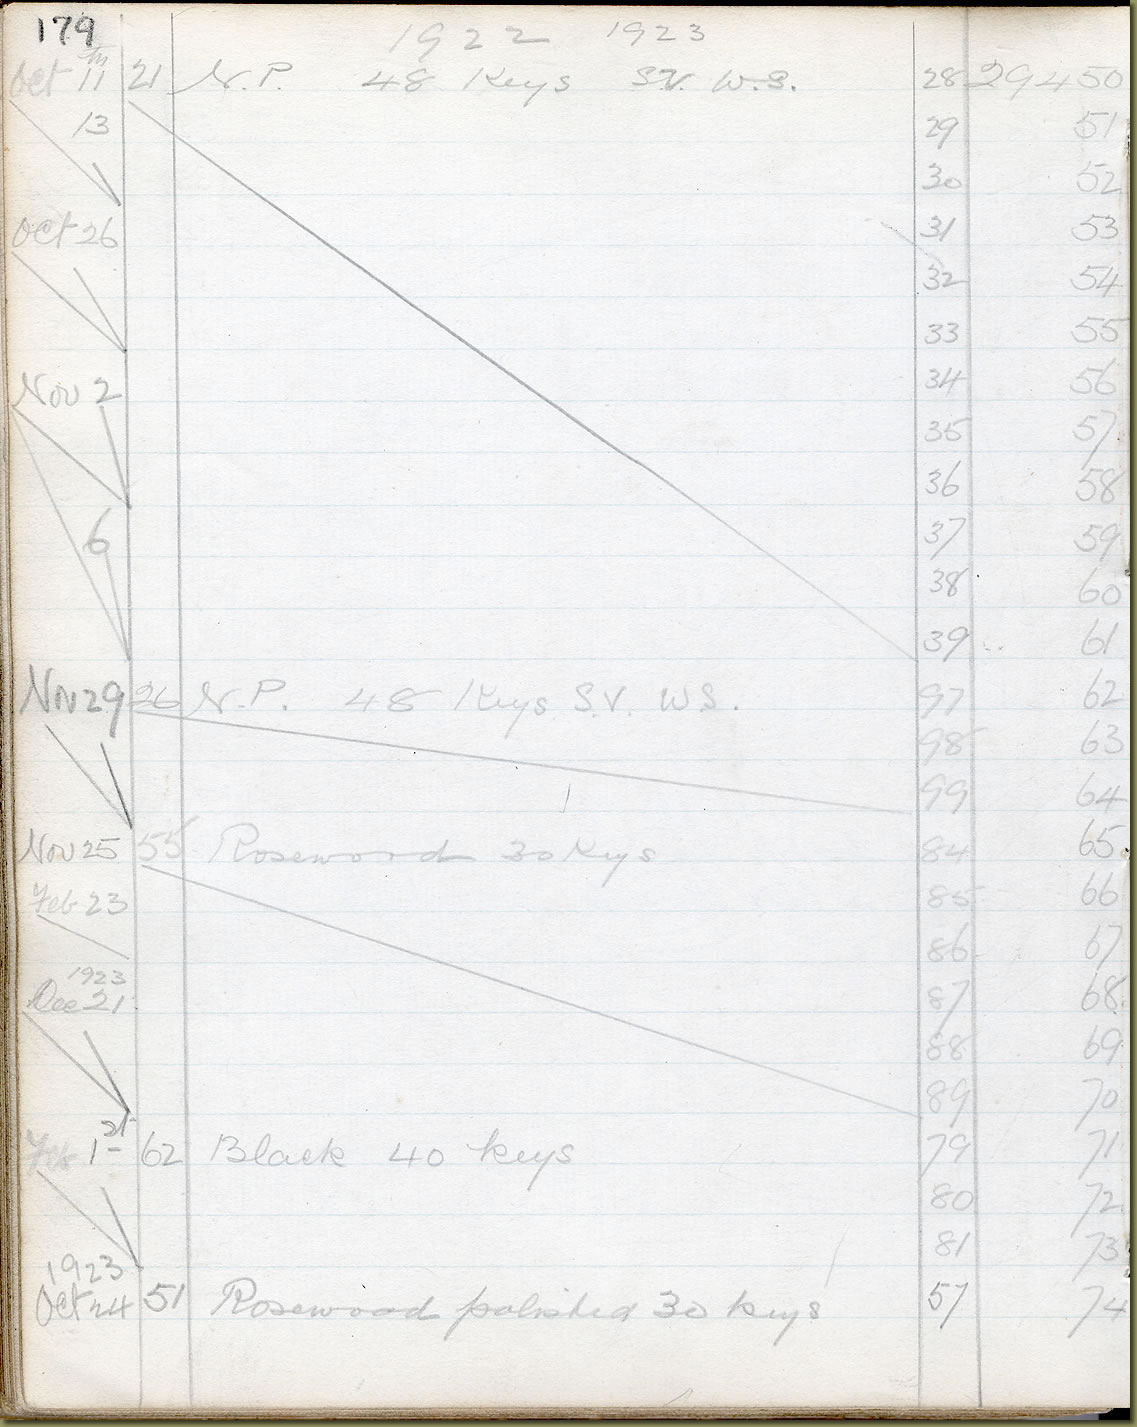 179
1922 1923
Oct 11th 21 N.P. 48 Keys S.V. W.S. 28 29450
13 29 51
30 52
Oct 26 31 53
32 54
33 55
Nov 2 34 56
35 57
36 58
6 37 59
38 60
39 61
Nov 29 26 N.P. 48 Keys S.V. W.S. 97 62
98 63
99 64
Nov 25 55 Rosewood 30 Keys 84 65
Feb 23 85 66
86 67
1923
Dec 21 87 68
88 69
89 70
Feb 1st 62 Black 40 Keys 79 71
80 72
81 73
1923
Oct 24 51 Rosewood polished 30 keys 57 74